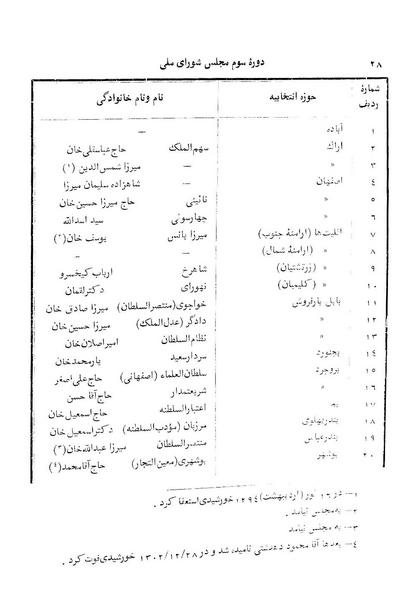 ۲۸ دورهٔ سوم مجلس شورای ملی
شمارهٔ ردیف حوزه انتخابیه نام و نام خانوادگی
۱ آباده —
۲ اراک سهم‌الملک حاج عباسقلی‌خان
۳ » — میرزا شمس‌الدین (۱)
۴ اصفهان — شاهزاده سلیمان میرزا
۵ » نائینی حاج میرزا حسین خان
۶ » چهارسوئی سید اسدالله
۷ اقلیت‌ها (ارامنهٔ جنوب) میرزا یانس یوسف خان(۲)
۸ » (ارامنهٔ شمال) —
۹ » (زرتشتیان) شاهرخ ارباب کیخسرو
۱۰ » (کلیمیان) نهورای دکتر لقمان
۱۱ بابل بارفروش خواجوی(منتصرالسلطان) میرزا صادق خان
۱۲ » دادگر (عدل‌الملک) میرزا حسین خان
۱۳ » نظام‌السلطان امیراصلان خان
۱۴ بجنورد سردار سعید یارمحمدخان
۱۵ بروجرد سلطان‌العلماء (اصفهانی) حاج علی اصغر
۱۶ » شریعتمدار حاج آقا حسن
۱۷ بم اعتبارالسلطنه حاج اسمعیل خان
۱۸ بندرپهلوی مرزبان (مؤدب‌السلطنه) دکتر اسمعیل خان
۱۹ بندرعباس منتصرالسلطان میرزا عبدالله خان(۳)
۲۰ بوشهر بوشهری(معین‌التجار) حاج آقامحمد(۴)
۱— در ۱۶ ثور (اردیبهشت) ۱۲۹۴ خورشیدی استعفا کرد .
۲— به مجلس نیامد
۳— به مجلس نیامد
۴— بعدها آقا محمود نامید، شد و در ۱۳۰۲/۱۲/۲۸ خورشیدی فوت کرد .